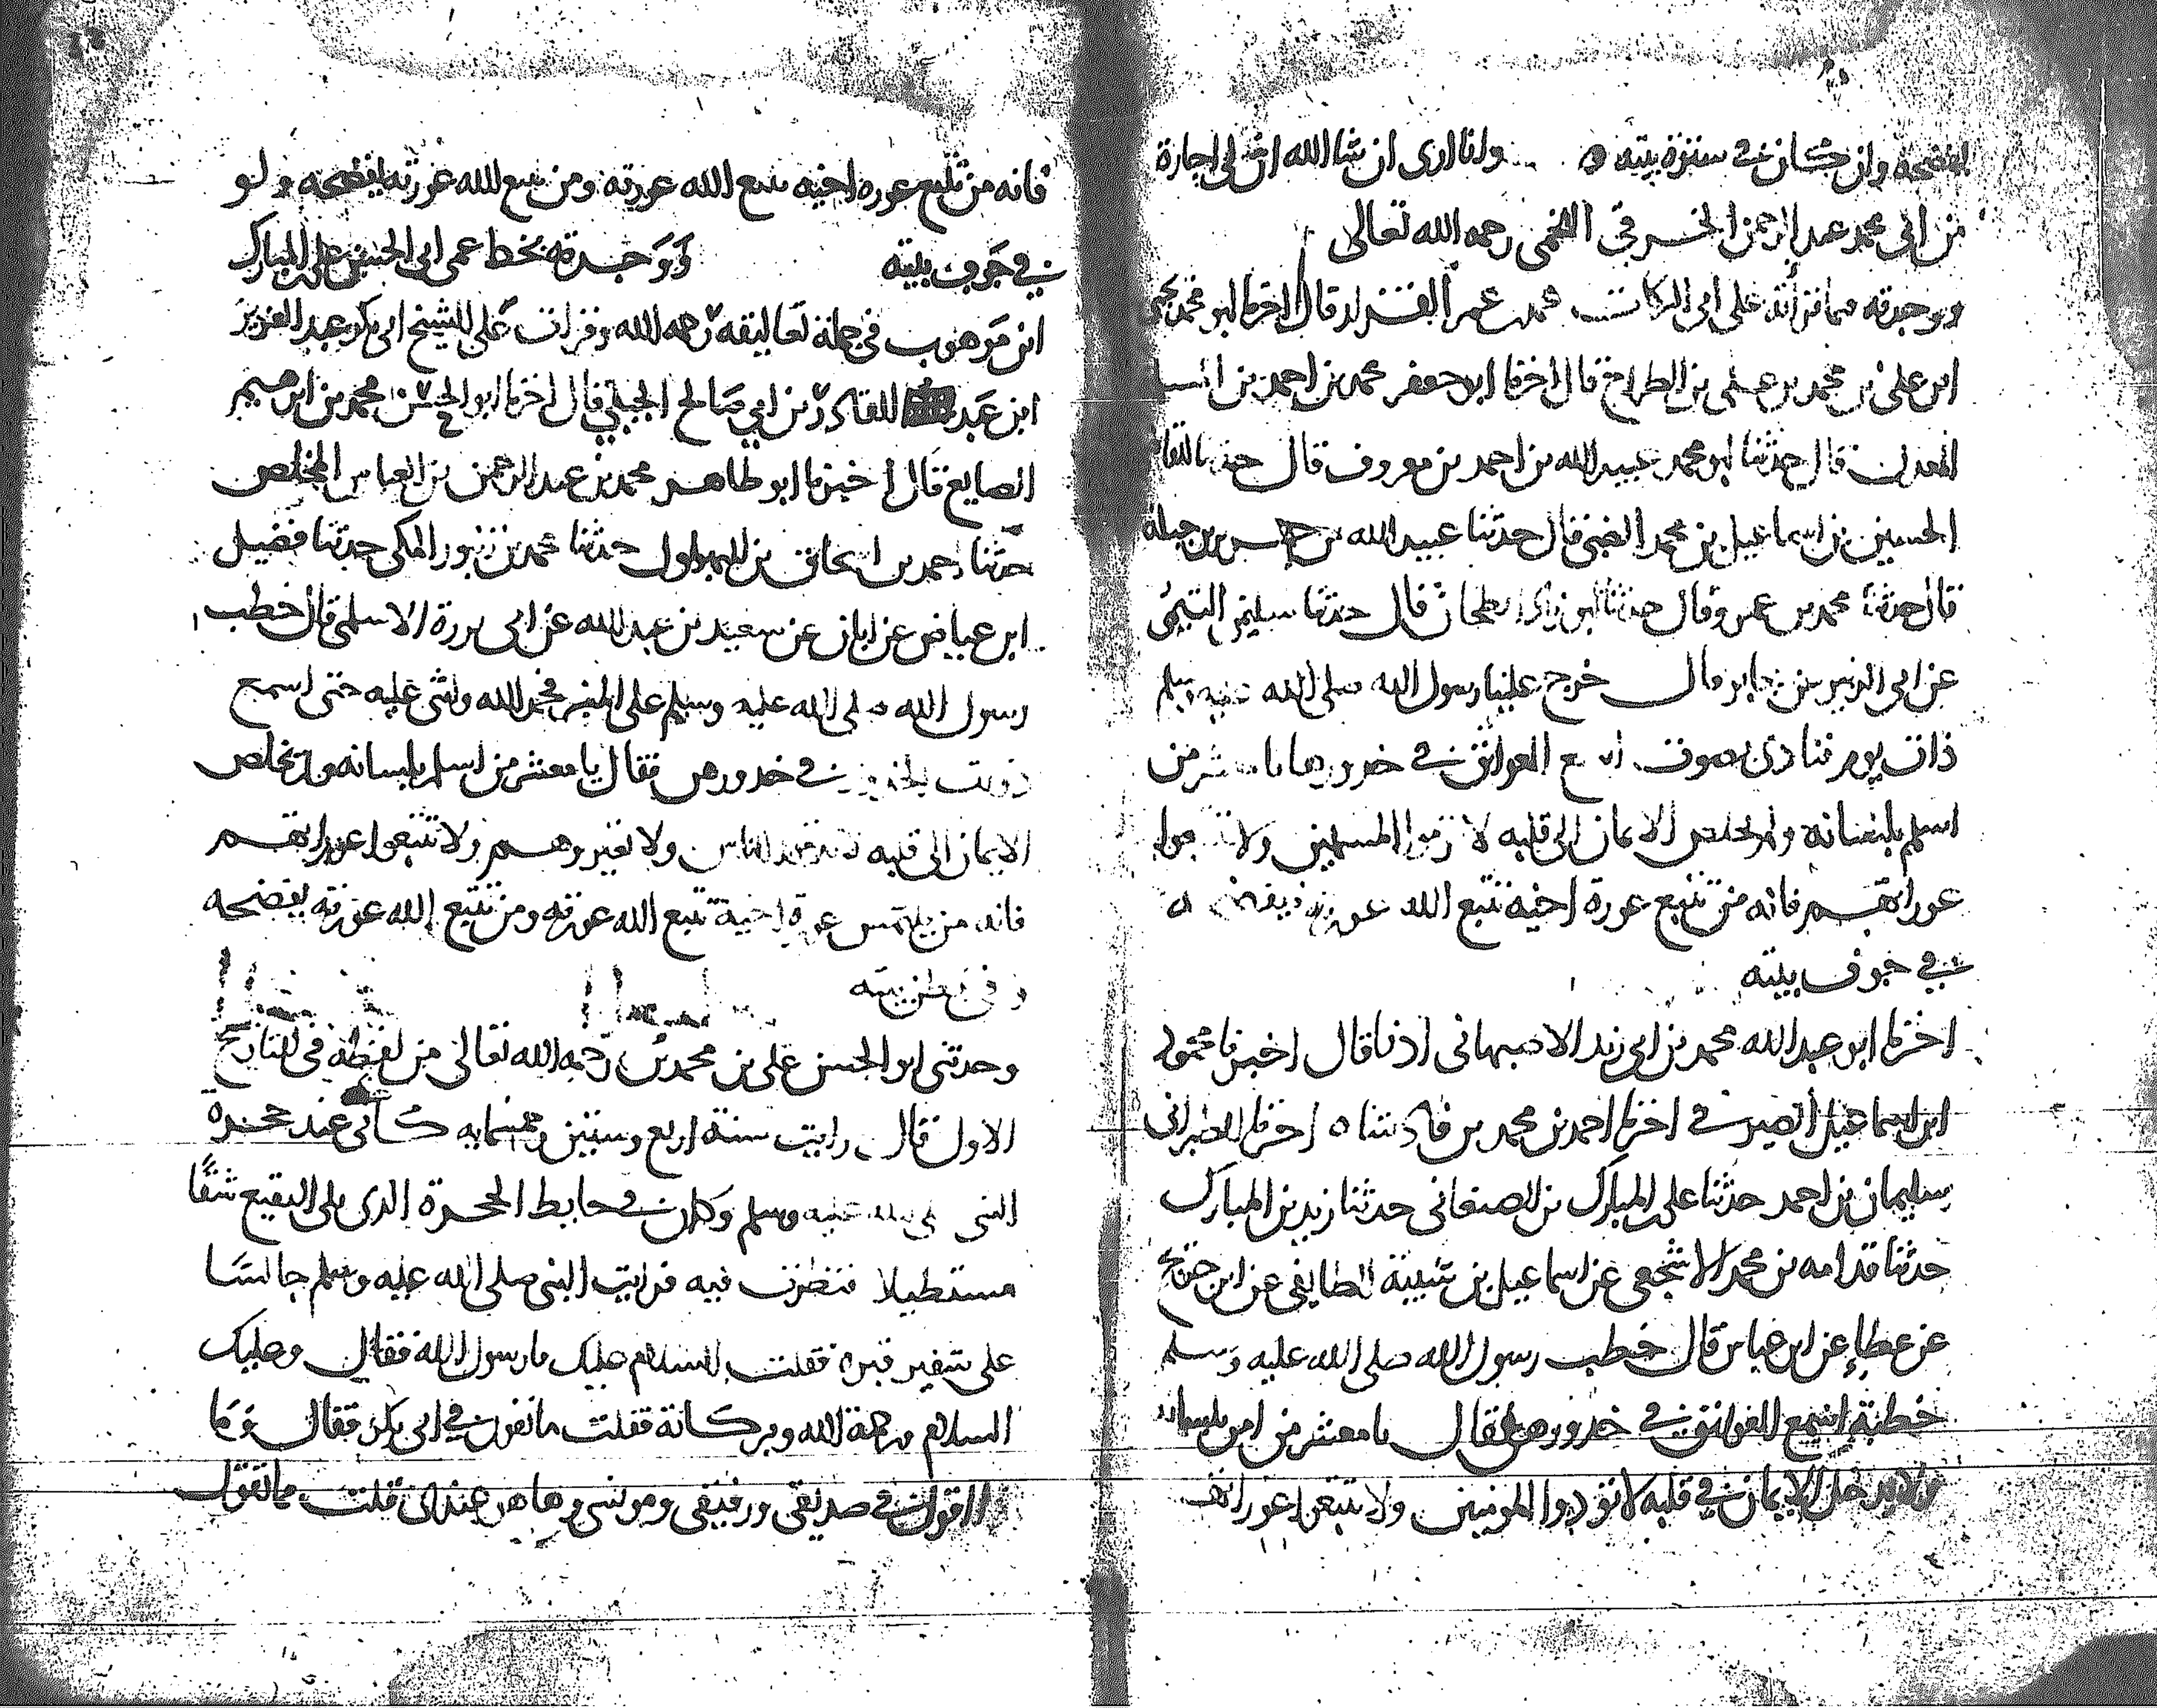 يفضحه وان كان في سترة بيته ه وانا ارى ان شا الله ان لي اجازة
من ابي محمد عبد الرحمن الخرقي اللخمي رحمه الله تعالى
ووجدته فيما قرأته على ابي البركات عمر القزاز قال اخبرنا ابو محمد يحيى
ابن علي بن محمد بن علي بن الطراح قال اخبرنا ابو جعفر محمد بن احمد بن
المعدل قال حدثنا ابو محمد عبيد الله بن احمد بن معروف قال حدثنا القاضي
الحسين بن اسماعيل بن محمد الضبي قال حدثنا عبيد الله بن جرير بن جبلة
قال حدثنا محمد بن عمر وقال حدثنا الطحان قال حدثنا سليمن التيمي
عن ابي الزبير عن جابر قال خرج علينا رسول الله صلى الله عليه وسلم
ذات يوم فنادى بصوت اسمع العواتق في خدورها يا معشر من
اسلم بلسانه ولم يخلص الايمان الى قلبه لا تذموا المسلمين ولا تتبعوا
عوراتهم فانه من تتبع عورة اخيه تتبع الله عورته ه
في جوف بيته
اخبرنا ابن عبد الله محمد بن ابي زيد الاصبهاني اذنا قال اخبرنا محمود
ابن اسماعيل الصيرفي اخبرنا احمد بن محمد بن فاذشاه اخبرنا الطبراني
سليمان بن احمد حدثنا علي المبارك بن الصنعاني حدثنا زيد بن المبارك
حدثنا قدامه بن محمد الاشجعي عن اسماعيل بن شيبة الطايفي عن ابن جريج
عن عطاء عن ابن عباس قال خطب رسول الله صلى الله عليه وسلم
خطبة اسمع العواتق في خدورهن فقال يا معشر من امن بلسانه
ولم يدخل الايمان في قلبه لا توذوا المومنين ولا تتبعوا عوراتهم
فانه من تتبع عوره اخيه تتبع الله عورته ومن تتبع الله عورته يفضحه ولو
في جوف بيته ووجدته بخط عمي ابي الحسين علي المبارك
ابن موهوب في جملة تعاليقه رحمه الله وقرات على الشيخ ابي بكر عبد العزيز
ابن عبد القادر بن ابي صالح الجيلي قال اخبرنا ابو الحسن محمد بن ابرهيم
الصايغ قال اخبرنا ابو طاهر محمد بن عبد الرحمن بن العباس المخلص
حدثنا احمد بن اسحاق بن البهلول حدثنا محمد بن زنبور المكي حدثنا فضيل
ابن عياض عن ابان عن سعيد بن عبد الله عن ابي برزة الاسلمي قال خطب
رسول الله صلى الله عليه وسلم على المنبر فحمد الله واثنى عليه حتى اسمع
ذوات في خدورهن فقال يا معشر من اسلم بلسانه ولم يخلص
الايمان الى قلبه الناس ولا تعيروهم ولا تتبعوا عوراتهم
فانه من يلتمس عورة اخيه تتبع الله عورته ومن تتبع الله عورته يفضحه
في بطن بيته
وحدثني ابو الحسن علي بن محمد بن رحمه الله تعالى من لفظه في التاريخ
الاول قال رايت سنة اربع وستين وخمسمايه كاني عند حجرة
النبي صلى الله عليه وسلم وكان في حايط الحجرة الذي يلي البقيع شقا
مستطيلا فنظرت فيه فرايت النبي صلى الله عليه وسلم جالسا
على شفير قبره فقلت السلام عليك يا رسول الله فقال وعليك
السلام ورحمة الله وبركاته فقلت ما تقول في ابي بكر فقال وما
اقول في صديقي ورفيقي ومونسي وها هو عندي قلت ما تقول